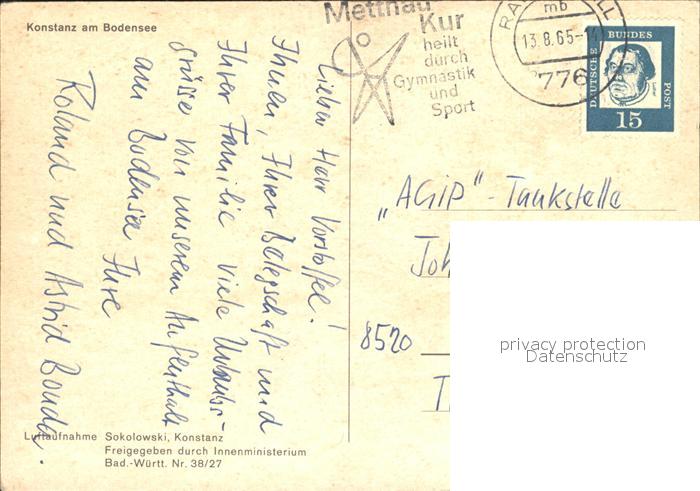 Konstanz am Bodensee
Mettnau
Kur
heilt
durch
Gymnastik
und
Sport
mb
13.8.65-14
776
DEUTSCHE BUNDES POST
15
Lieber Herr Vorstoffel!
Ihnen, Ihrer Belegschaft und
Ihrer Familie viele Urlaubs-
grüsse von unserem Aufenthalt
am Bodensee Ihre
Roland und Astrid Bouda.
„AGIP"-Tankstelle
Joh
8520
privacy protection
Datenschutz
Luftaufnahme Sokolowski, Konstanz
Freigegeben durch Innenministerium
Bad.-Württ. Nr. 38/27